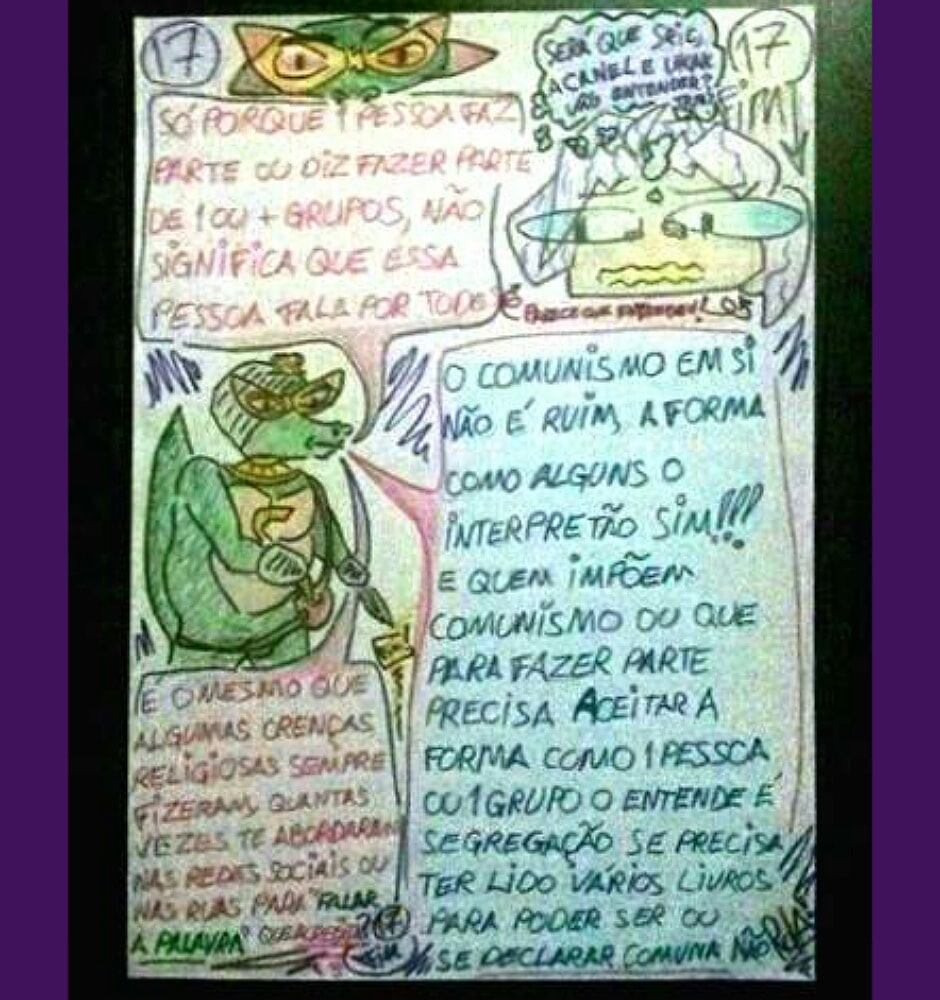 17
SÓ PORQUE 1 PESSOA FAZ
PARTE OU DIZ FAZER PARTE
DE 1 OU + GRUPOS, NÃO
SIGNIFICA QUE ESSA
PESSOA FALA POR TODE
SERÁ QUE
ACANEL E
VÃO ENTENDER?
17
É PARECE QUE ENTENDEU!
O COMUNISMO EM SI
NÃO É RUIM, A FORMA
COMO ALGUNS O
INTERPRETÃO SIM!!!
E QUEM IMPÕEM
COMUNISMO OU QUE
PARA FAZER PARTE
PRECISA ACEITAR A
FORMA COMO 1 PESSOA
OU 1 GRUPO O ENTENDE É
SEGREGAÇÃO SE PRECISA
TER LIDO VÁRIOS LIVROS
PARA PODER SER OU
SE DECLARAR COMUNA NÃO
É O MESMO QUE
ALGUMAS CRENÇAS
RELIGIOSAS SEMPRE
FIZERAM, QUANTAS
VEZES TE ABORDARAM
NAS REDES SOCIAIS OU
NAS RUAS PARA "FALAR
A PALAVRA"
17